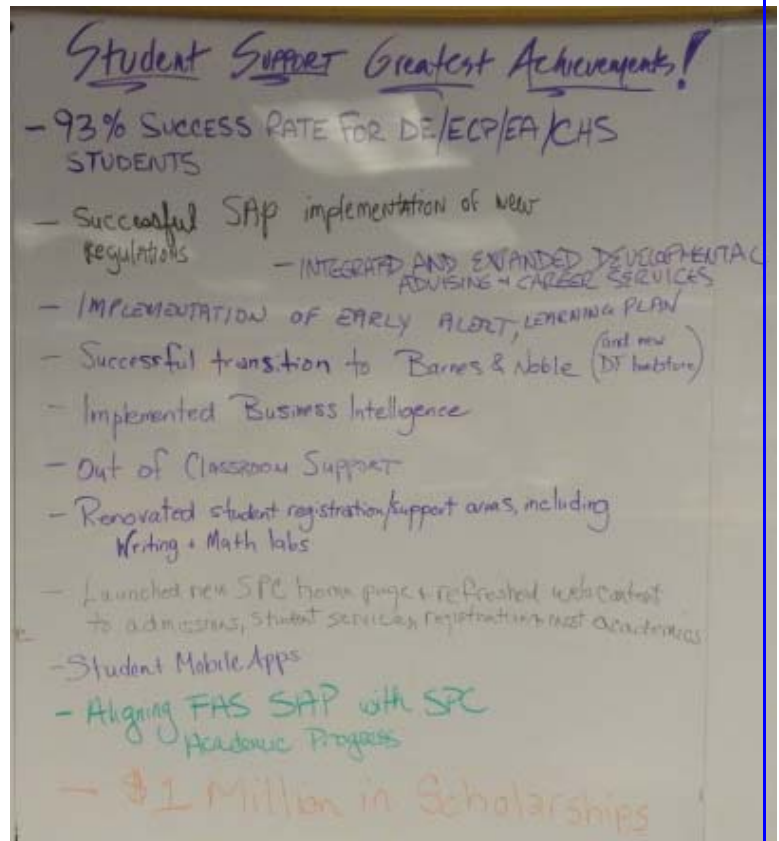 Student Support Greatest Achievements!
- 93% SUCCESS RATE FOR DE/ECP/EA/CHS
STUDENTS
- Successful SAP implementation of new
regulations
- INTEGRATED AND EXPANDED DEVELOPMENTAL
ADVISING + CAREER SERVICES
- IMPLEMENTATION OF EARLY ALERT, LEARNING PLAN
- Successful transition to Barnes & Noble (and new
DT bookstore)
- Implemented Business Intelligence
- Out of Classroom Support
- Renovated student registration/support areas, including
Writing + Math labs
- Launched new SPC home page + refreshed web content
to admissions, student services, registration + most academics
- Student Mobile Apps
- Aligning FAS SAP with SPC
Academic Progress
- $1 Million in Scholarships